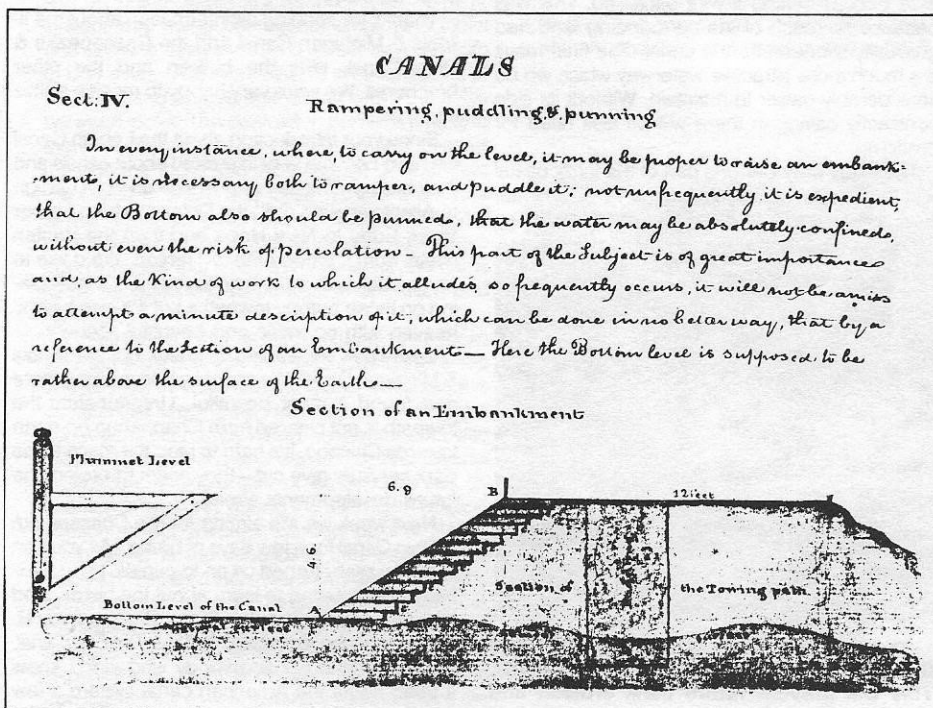 CANALS
Sect: IV.
Rampering, puddling, &. punning
In every instance, where, to carry on the level, it may be proper to raise an embank=
ment, it is necessary both to ramper, and puddle it; not unfrequently it is expedient,
that the Bottom also should be punned, that the water may be absolutely confined,
without even the risk of percolation — This part of the Subject is of great importance
and, as the Kind of work to which it alludes, so frequently occurs, it will not be amiss
to attempt a minute description of it, which can be done in no better way, that by a
reference to the Section of an Embankment — Here the Bottom level is supposed to be
rather above the surface of the Earth —
Section of an Embankment
Plummet Level
6.9
B
12 feet
4.6.
Section of
the Towing path
Bottom Level of the Canal
A